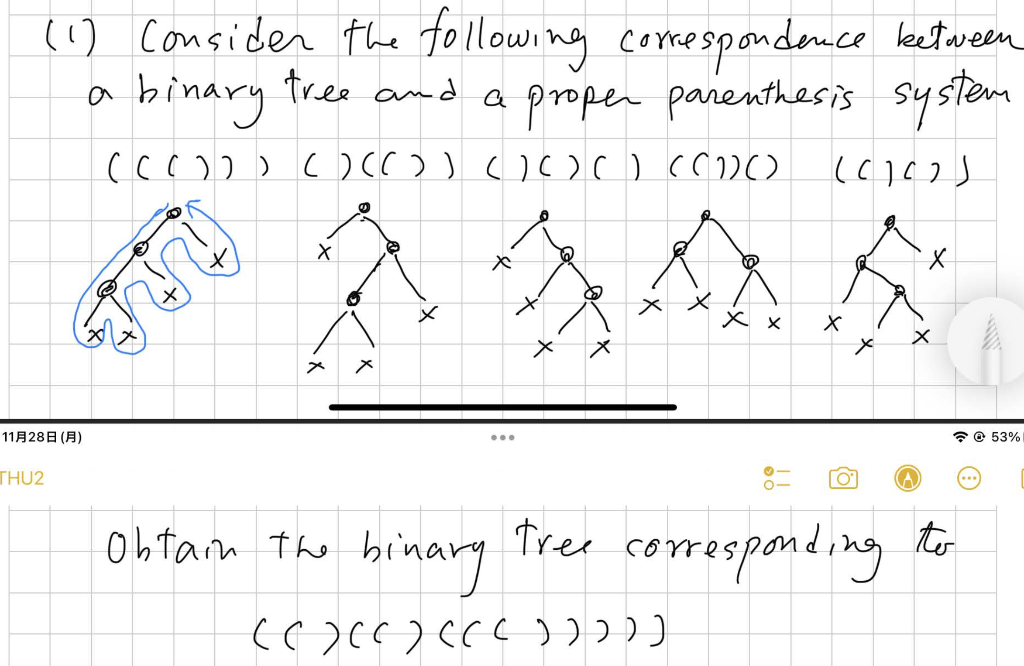 (1) Consider the following correspondence between
a binary tree and a proper parenthesis system
((())) ()(()) ()()() (())() (()())
x x x x x x x x x x x x x x x x x x x x
11月28日(月) 53%
THU2
Obtain the binary tree corresponding to
(()(()(((())))))